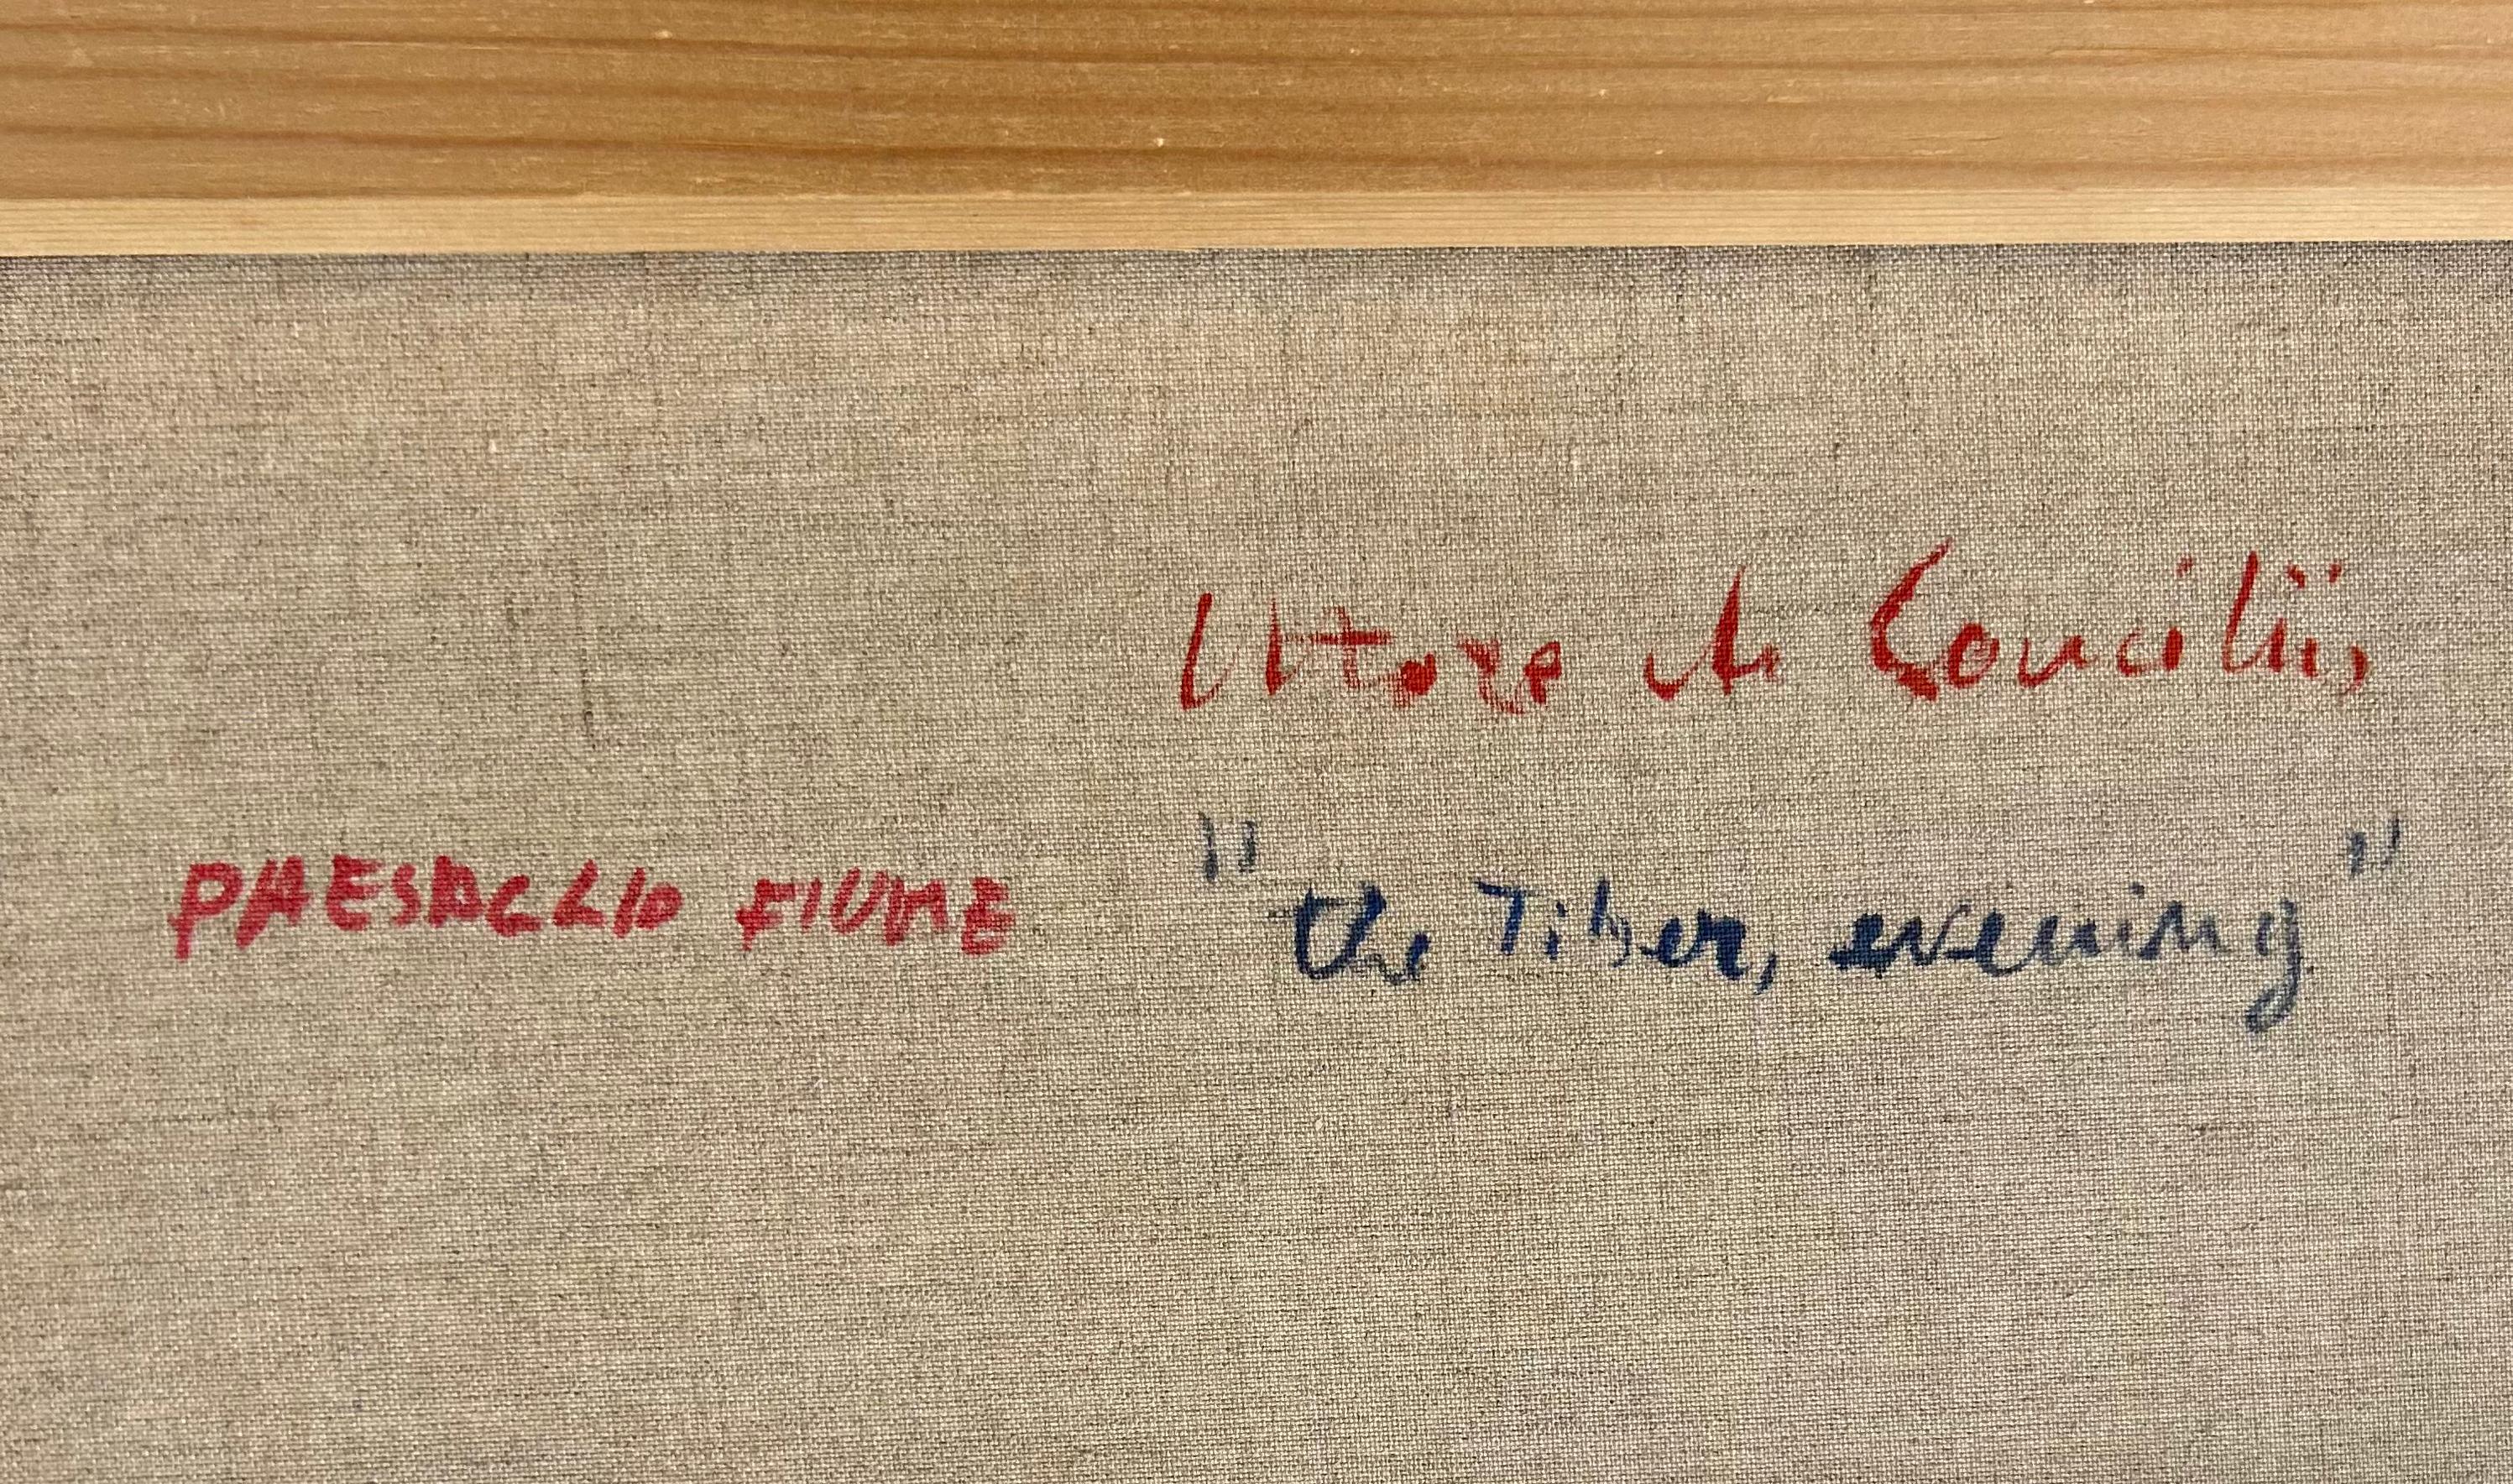 Ettore de Conciliis,
PAESAGGIO FIUME
"the Tiber, evening"